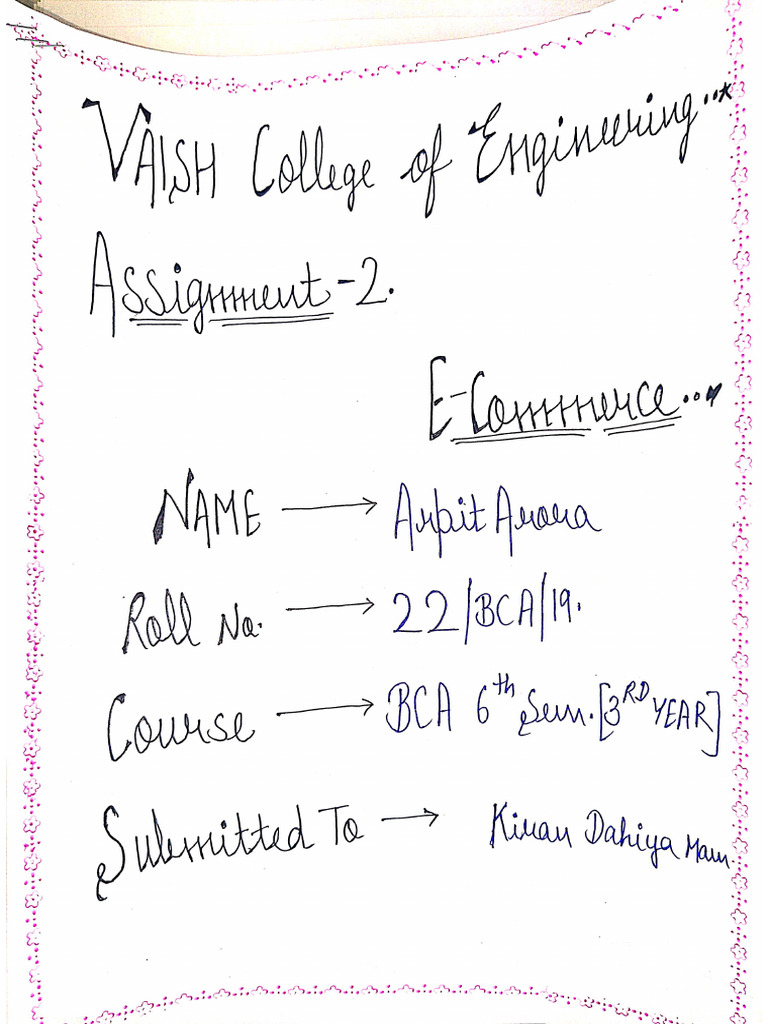 VAISH College of Engineering..*
Assignment-2.
E-Commerce..♥
NAME → Arpit Arora
Roll No. → 22/BCA/19.
Course → BCA 6th Sem. [3RD YEAR]
Submitted To → Kiran Dahiya Mam.